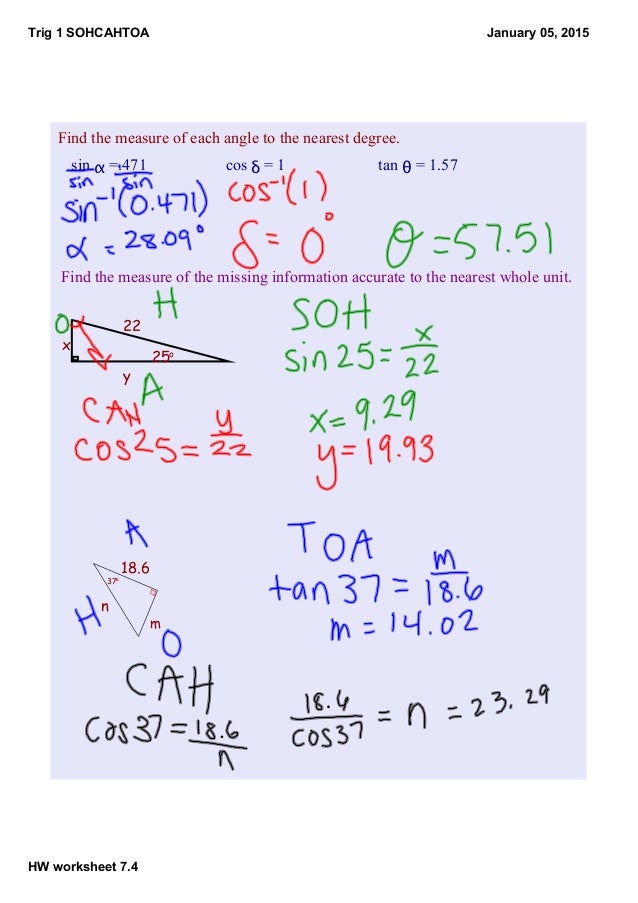 Trig 1 SOHCAHTOA January 05, 2015
Find the measure of each angle to the nearest degree.
sin α = .471 cos δ = 1 tan θ = 1.57
sin sin
sin⁻¹(0.471) cos⁻¹(1)
α = 28.09° δ = 0° θ = 57.51
Find the measure of the missing information accurate to the nearest whole unit.
H SOH
O 22
x 25° sin 25 = x/22
y A
CAH x = 9.29
cos 25 = y/22 y = 19.93
A TOA
18.6
37° tan 37 = m/18.6
H n m m = 14.02
O
CAH
cos 37 = 18.6/n 18.6/cos 37 = n = 23.29
HW worksheet 7.4